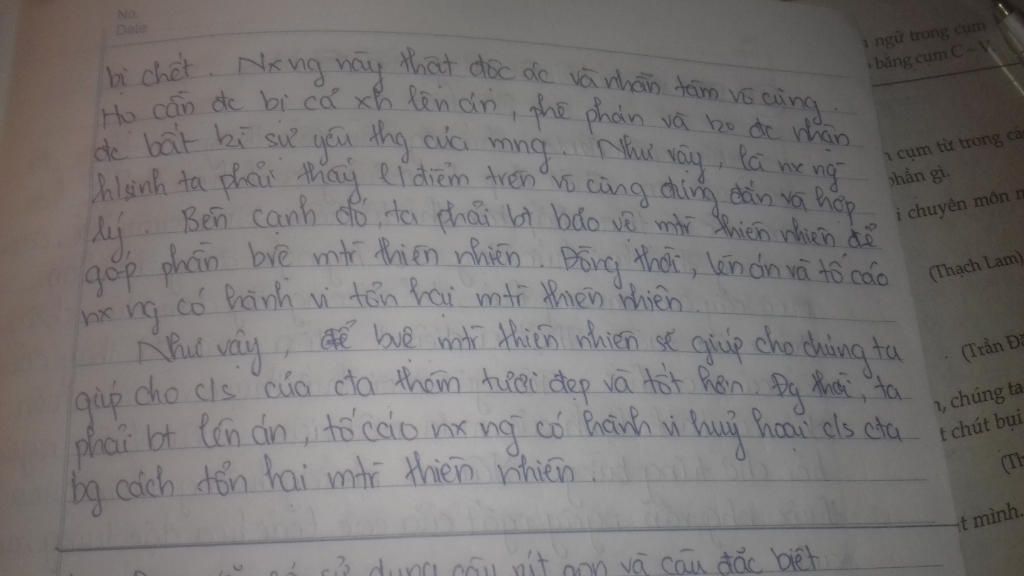 No.
Date
bị chết. Nxng này thật độc ác và nhẫn tâm vô cùng.
Họ cần đc bị cả xh lên án, phê phán và ko đc nhận
đc bất kì sự yêu thg của mng. Như vậy, là nx ng
h/sinh ta phải thấy q/điểm trên vô cùng đúng đắn và hợp
lý. Bên cạnh đó, ta phải bt bảo vệ mtr thiên nhiên để
góp phần bvệ mtr thiên nhiên. Đồng thời, lên án và tố cáo
nx ng có hành vi tổn hại mtr thiên nhiên.
Như vậy, để bvệ mtr thiên nhiên sẽ giúp cho chúng ta
giúp cho c/s của cta thêm tươi đẹp và tốt hơn. Đg thời, ta
phải bt lên án, tố cáo nx ng có hành vi huỷ hoại c/s cta
bg cách tổn hại mtr thiên nhiên.
sử dụng câu rút gọn và câu đặc biệt
ngữ trong cụm
bằng cụm C - V
cụm từ trong câ
phần gì.
chuyên môn m
(Thạch Lam)
(Trần Đă
, chúng ta
t chút bụi
(Th
t mình.